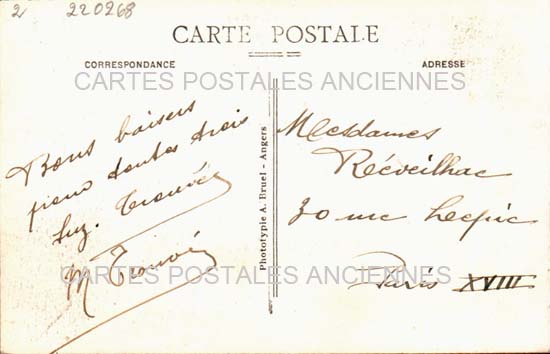 2 220268
CARTE POSTALE
CORRESPONDANCE
ADRESSE
CARTES POSTALES ANCIENNES
Bons baisers
pour toutes trois
Suz. Trouvé
M Trouvé
Phototypie A. Bruel - Angers
Mesdames
Récveilhac
30 rue
Paris XVIII
CARTES POSTALES ANCIENNES